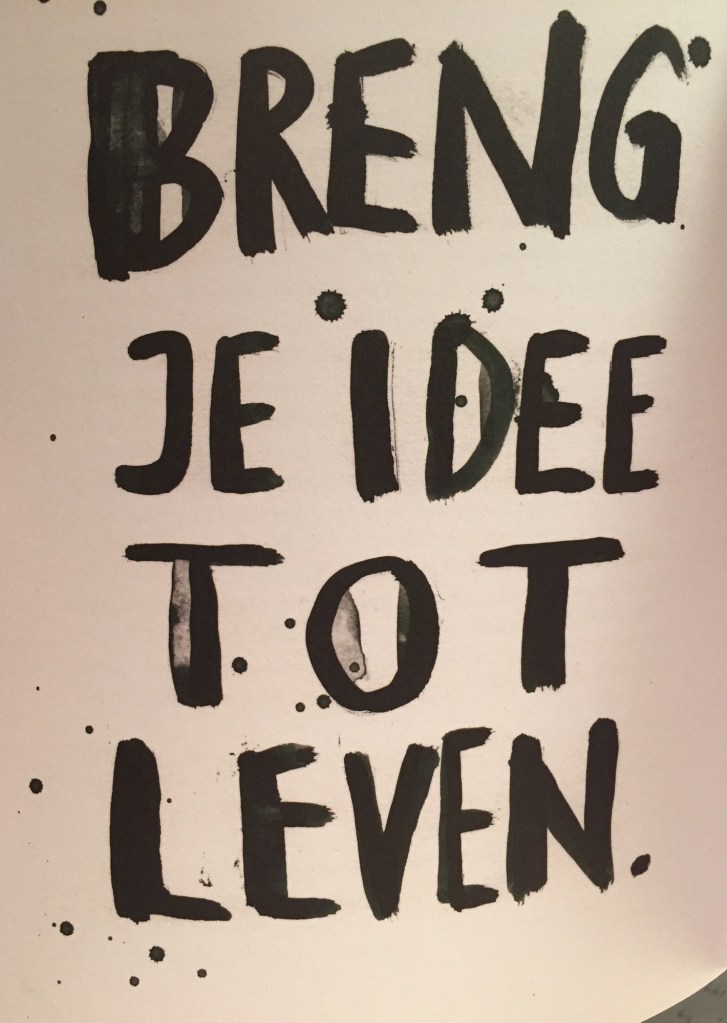 BRENG
JE IDEE
TOT
LEVEN.